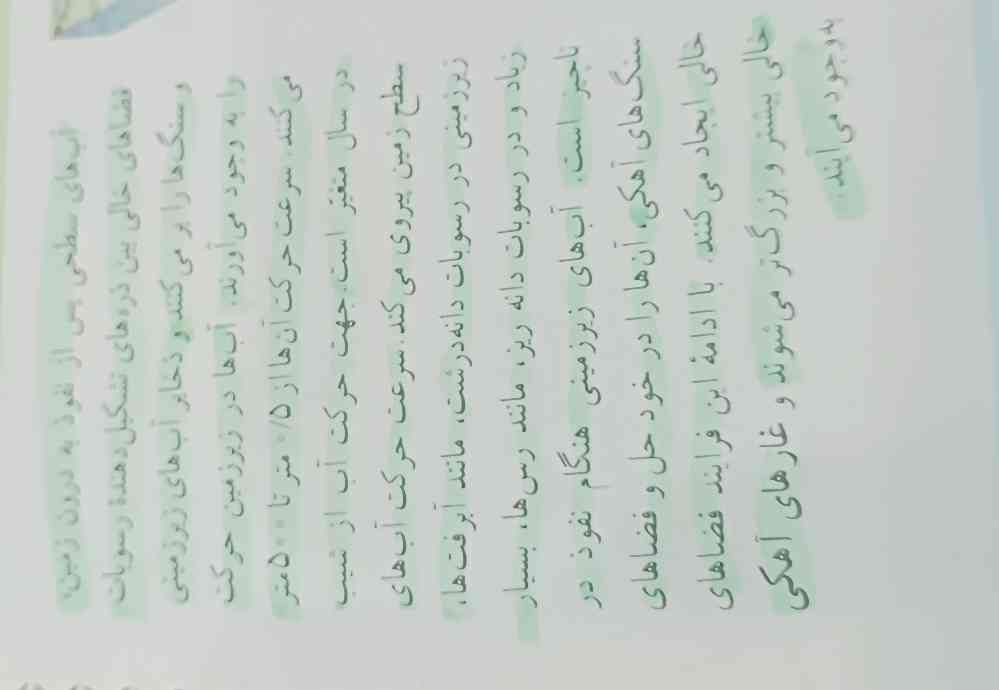 آب‌های سطحی پس از نفوذ به درون زمین،
فضاهای خالی بین ذره‌های تشکیل دهندهٔ رسوبات
و سنگ‌ها را پر می‌کنند و ذخایر آب‌های زیرزمینی
را به وجود می‌آورند. آب‌ها در زیرزمین حرکت
می‌کنند. سرعت حرکت آن‌ها از ۰/۵ متر تا ۵۰۰ متر
در سال متغیّر است. جهت حرکت آب از شیب
سطح زمین پیروی می‌کند. سرعت حرکت آب‌های
زیرزمینی در رسوبات دانه‌درشت، مانند آبرفت‌ها،
زیاد و در رسوبات دانه ریز، مانند رس‌ها، بسیار
ناچیز است. آب‌های زیرزمینی هنگام نفوذ در
سنگ‌های آهکی، آن‌ها را در خود حل و فضاهای
خالی ایجاد می‌کنند. با ادامهٔ این فرایند فضاهای
خالی بیشتر و بزرگ‌تر می‌شوند و غارهای آهکی
به‌وجود می‌آیند.